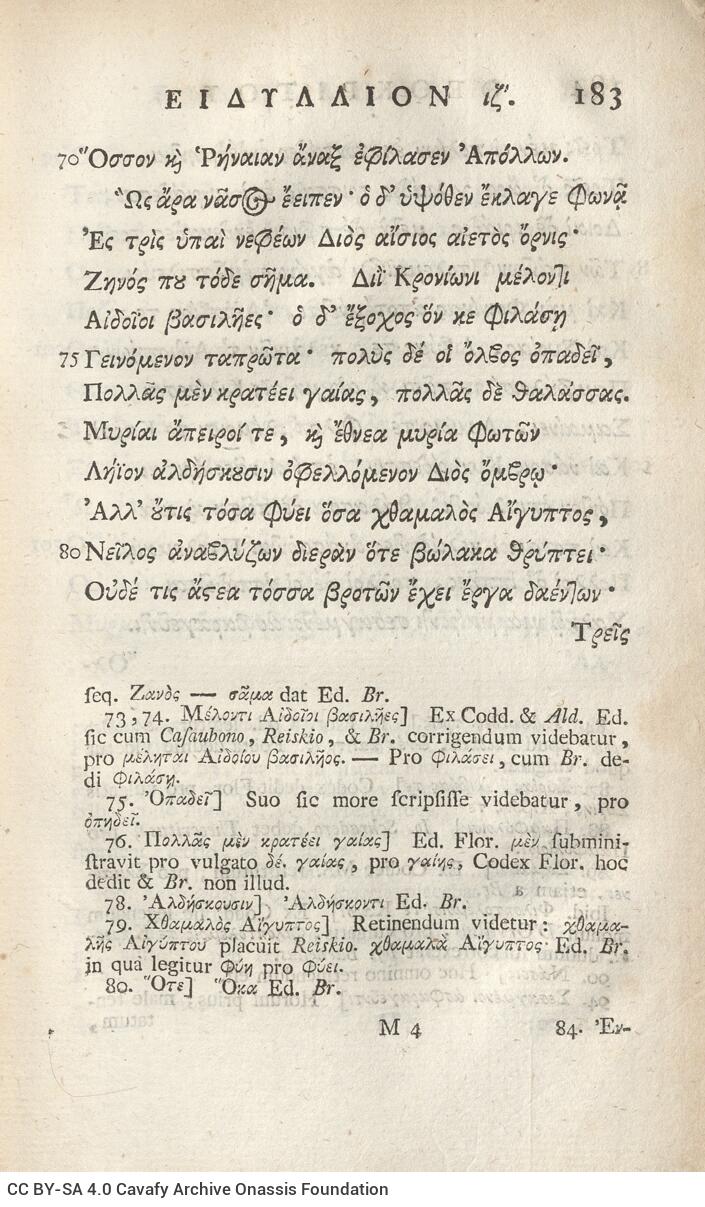 ΕΙΔΥΛΛΙΟΝ ιζ'. 183
70 Ὅσσον κỳ Ῥήναιαν ἄναξ ἐφίλασεν Ἀπόλλων.
Ὣς ἄρα νᾶσος ἔειπεν· ὁ δ' ὑψόθεν ἔκλαγε φωνᾷ
Ἐς τρὶς ὑπαὶ νεφέων Διὸς αἴσιος αἰετὸς ὄρνις·
Ζηνός πȣ τόδε σῆμα. Διῒ Κρονίωνι μέλοντι
Αἰδοῖοι βασιλῆες· ὁ δ' ἔξοχος ὅν κε φιλάσῃ
75 Γεινόμενον ταπρῶτα· πολὺς δέ οἱ ὄλβος ὀπαδεῖ,
Πολλᾶς μὲν κρατέει γαίας, πολλᾶς δὲ θαλάσσας.
Μυρίαι ἄπειροί τε, κỳ ἔθνεα μυρία φωτῶν
Λήϊον ἀλδήσκȣσιν ὀφελλόμενον Διὸς ὄμβρῳ·
Ἀλλ' ȣ̓́τις τόσα φύει ὅσα χθαμαλὸς Αἴγυπτος,
80 Νεῖλος ἀναβλύζων διερὰν ὅτε βώλακα θρύπτει·
Οὐδέ τις ἄϛεα τόσσα βροτῶν ἔχει ἔργα δαέντων·
Τρεῖς
ſeq. Ζανὸς — σᾶμα dat Ed. Br.
73, 74. Μέλοντι Αἰδοῖοι βασιλῆες] Ex Codd. & Ald. Ed.
ſic cum Caſaubono, Reiskio, & Br. corrigendum videbatur,
pro μέληται Αἰδοίου βασιλῆος. — Pro φιλάσει, cum Br. de-
di φιλάσῃ.
75. Ὀπαδεῖ] Suo ſic more ſcripſiſſe videbatur, pro
ὀπηδεῖ.
76. Πολλᾶς μὲν κρατέει γαίας] Ed. Flor. μὲν ſubmini-
ſtravit pro vulgato δέ. γαίας, pro γαίης, Codex Flor. hoc
dedit & Br. non illud.
78. Ἀλδήσκουσιν] Ἀλδήσκοντι Ed. Br.
79. Χθαμαλὸς Αἴγυπτος] Retinendum videtur: χθαμα-
λῆς Αἰγύπτου placuit Reiskio. χθαμαλὰ Αἴγυπτος Ed. Br.
in qua legitur φύῃ pro φύει.
80. Ὅτε] Ὅκα Ed. Br.
M 4 84. Ἐν-
CC BY-SA 4.0 Cavafy Archive Onassis Foundation